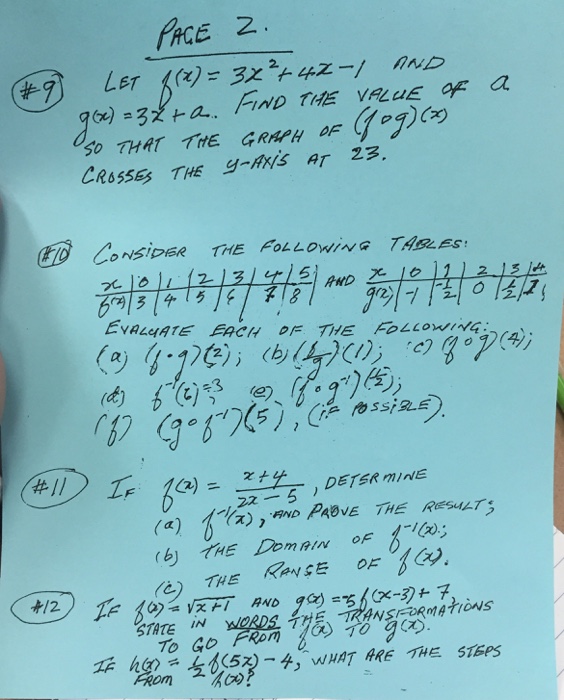 PAGE 2.
#9 LET f(x) = 3x² + 4x - 1 AND
g(x) = 3x + a. FIND THE VALUE OF a
SO THAT THE GRAPH OF (f∘g)(x)
CROSSES THE y-AXIS AT 23.
#10 CONSIDER THE FOLLOWING TABLES:
x | 0 | 1 | 2 | 3 | 4 | 5 | AND x | 0 | 1 | 2 | 3 | 4
f(x) | 3 | 4 | 5 | 6 | 7 | 8 | g(x) | -1 | -1/2 | 0 | 1/2 | 1;
EVALUATE EACH OF THE FOLLOWING:
(a) (f·g)(2); (b) (f/g)(1); (c) (f∘g)(4);
(d) f⁻¹(6)=3; (e) (f∘g⁻¹)(1/2);
(f) (g∘f⁻¹)(5), (IF POSSIBLE).
#11 IF f(x) = (x+4)/(2x-5), DETERMINE
(a) f⁻¹(x), AND PROVE THE RESULT;
(b) THE DOMAIN OF f⁻¹(x);
(c) THE RANGE OF f(x).
#12 IF f(x) = √x+1 AND g(x) = -5f(x-3)+7,
STATE IN WORDS THE TRANSFORMATIONS
TO GO FROM f(x) TO g(x).
IF h(x) = 1/2 f(5x) - 4, WHAT ARE THE STEPS
FROM h(x)?